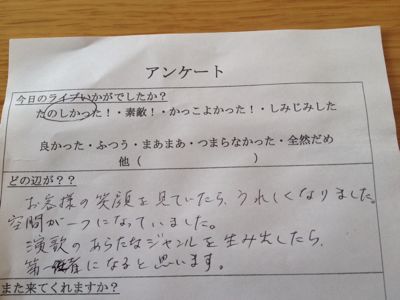 アンケート
今日のライブいかがでしたか？
たのしかった！・素敵！・かっこよかった！・しみじみした
良かった・ふつう・まあまあ・つまらなかった・全然だめ
他（　　　　　　　　）
どの辺が？？
お客様の笑顔を見ていたら、うれしくなりました。
空間が一つになっていました。
演歌のあらたなジャンルを生み出したら、
第一者になると思います。
また来てくれますか？